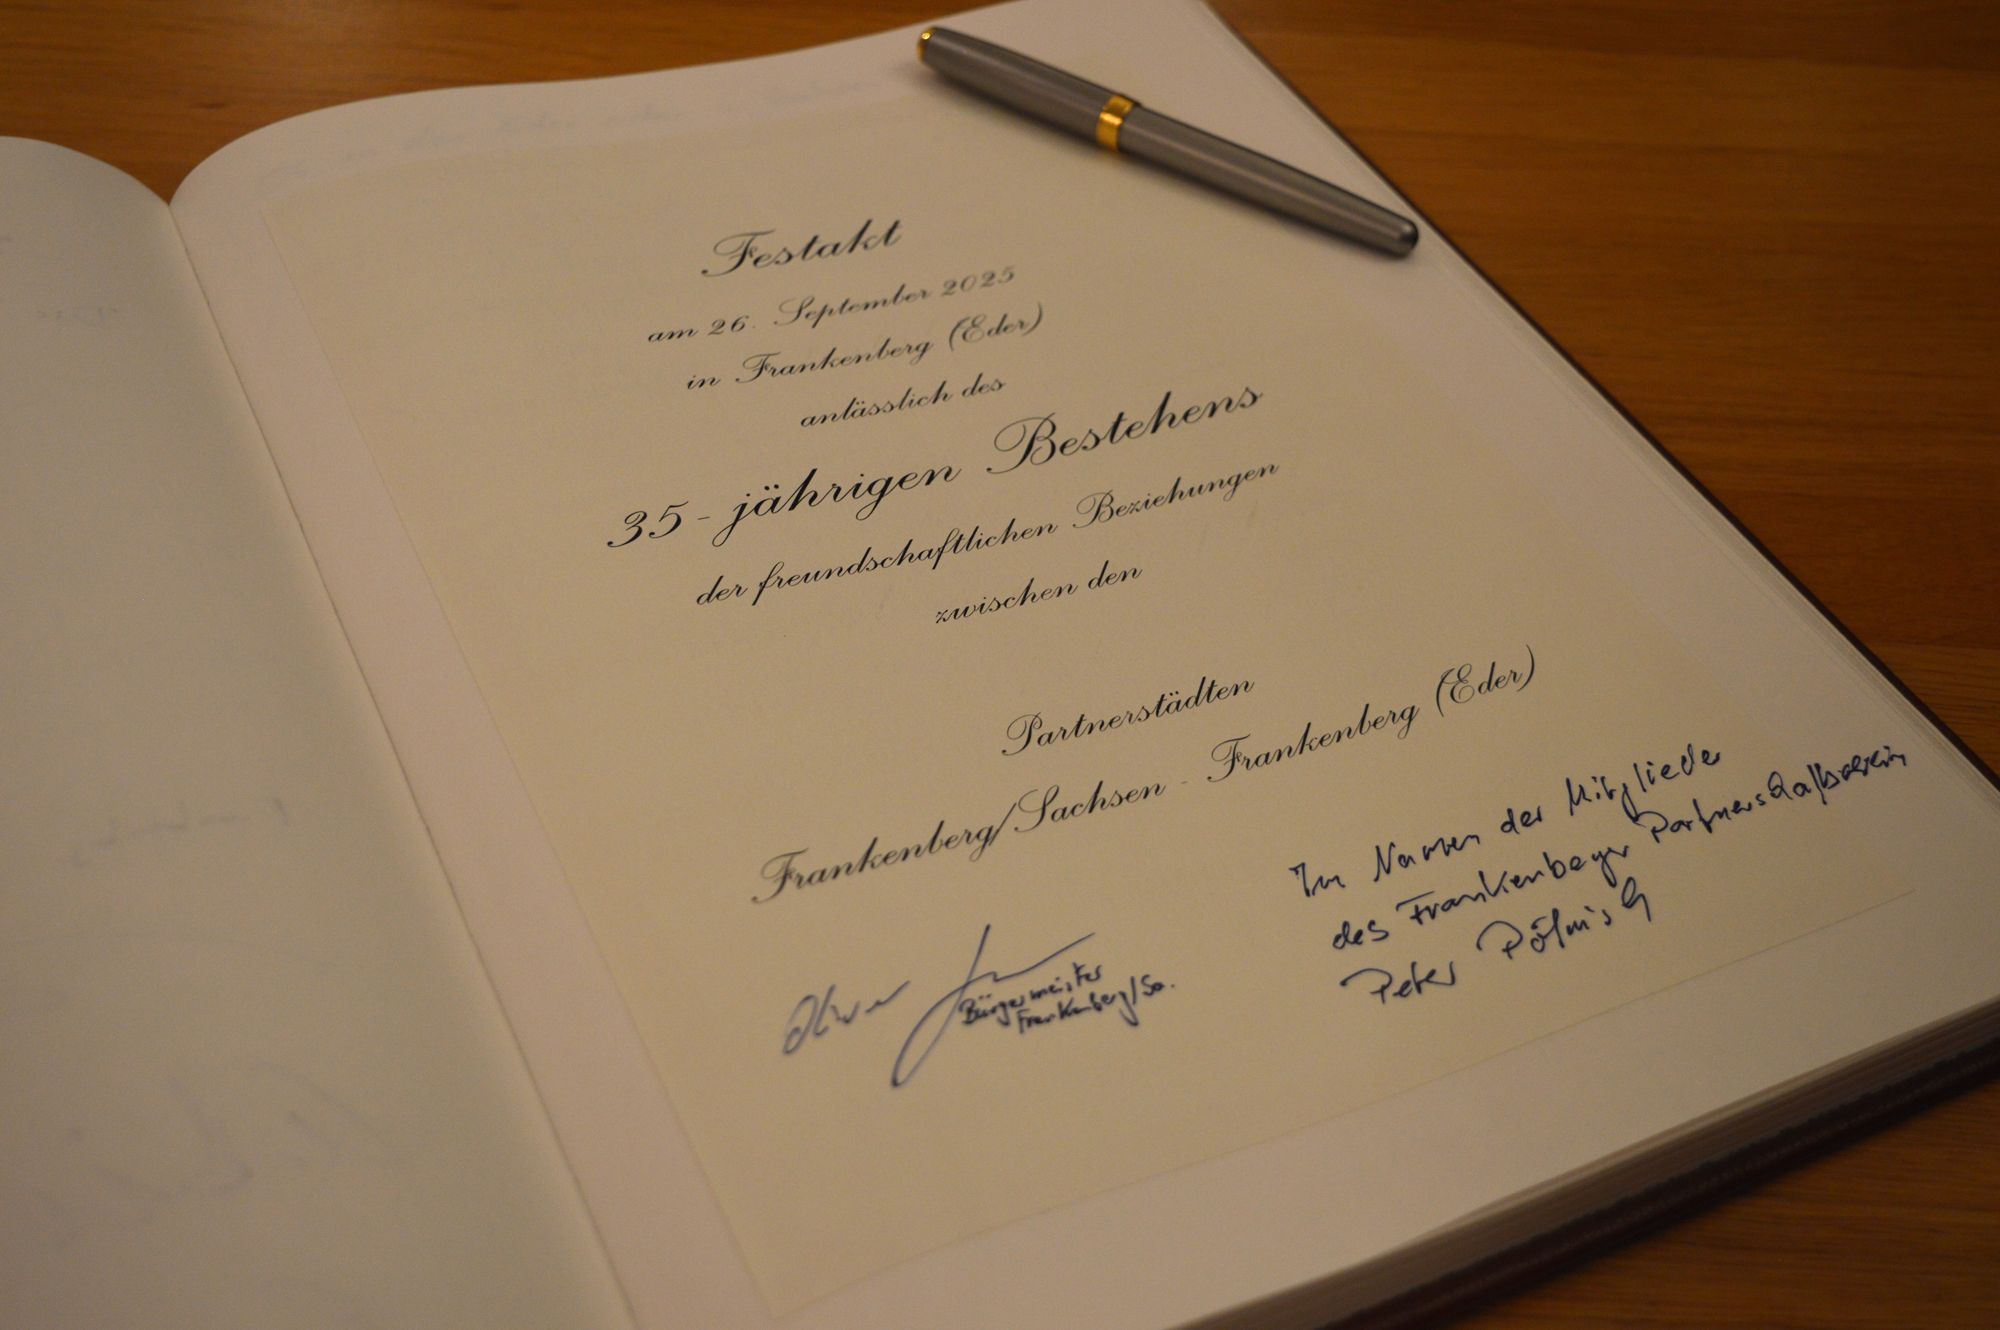 Festakt
am 26. September 2025
in Frankenberg (Eder)
anlässlich des
35-jährigen Bestehens
der freundschaftlichen Beziehungen
zwischen den
Partnerstädten
Frankenberg/Sachsen - Frankenberg (Eder)
Oliver
Bürgermeister
Frankenberg/Sa.
Im Namen der Mitglieder
des Frankenberger Partnerschaftsverein
Peter Pöhnisch